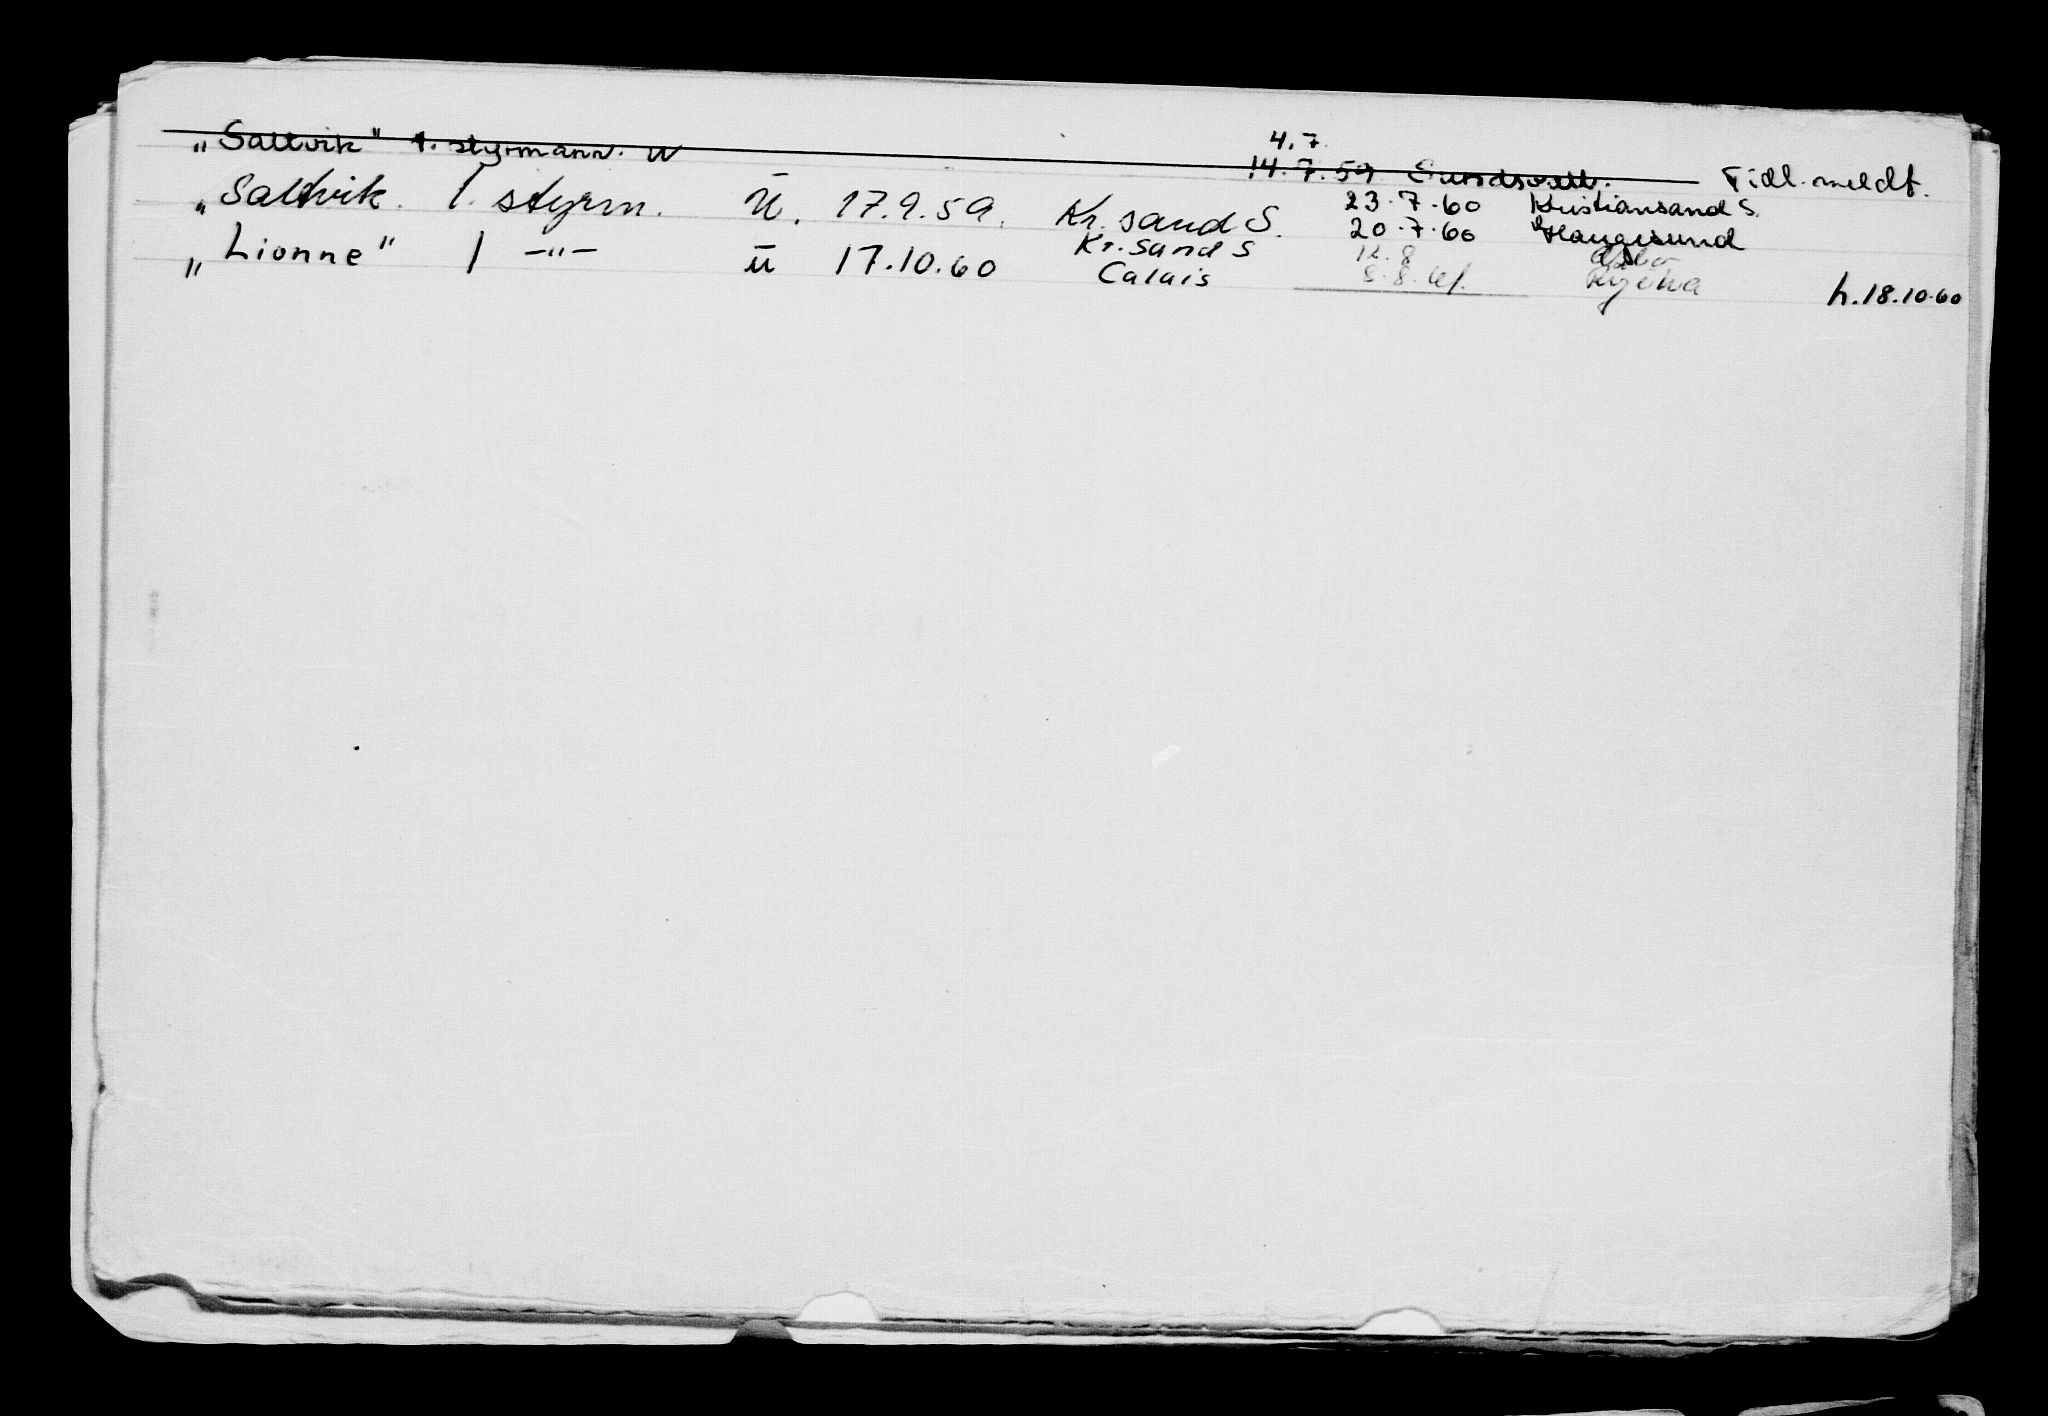 „Saltvik" 1. styrmann. u 4.7.
14.7.59 Sundsvall. Tidl. meldt.
„Saltvik. 1. styrm. ü. 17.9.59. Kr. sand S. 23.7.60 Kristiansand S.
Kr. sand S 20.7.60 Haugesund
„Lionne" 1 -"- ü 17.10.60 Calais 12.8 Oslo
8.8.61. h. 18.10.60